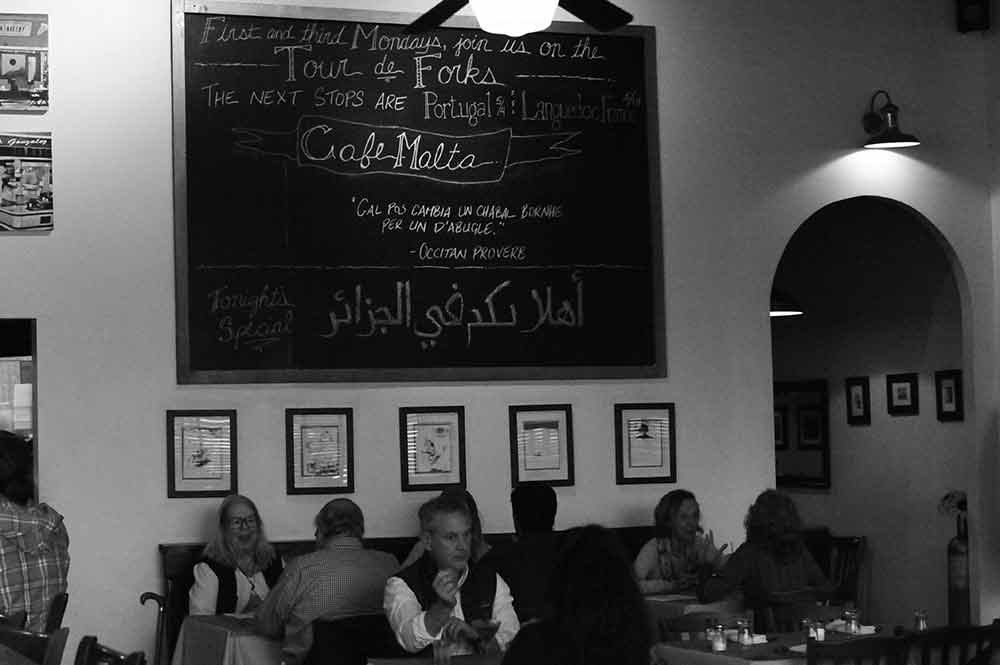 First and third Mondays, join us on the
Tour de Forks
THE NEXT STOPS ARE Portugal 5/4 Languedoc France
Cafe Malta
"CAL POS CAMBIA UN CHABAL BORNHE
PER UN D'ABUGLE."
-OCCITAN PROVERB
Tonight's
Speial
أهلا بكم في الجزائر
Gonzalez